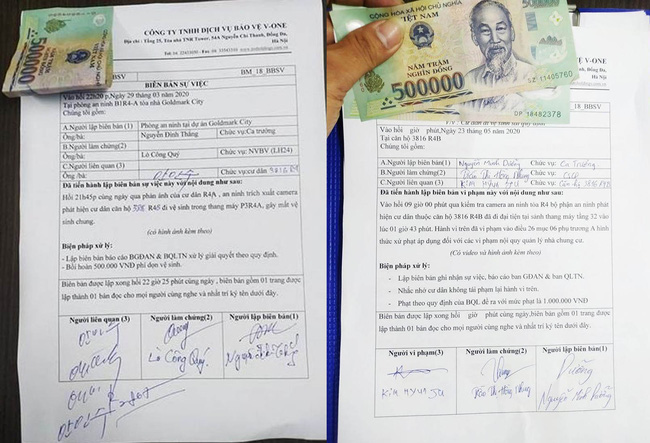 CÔNG TY TNHH DỊCH VỤ BẢO VỆ V-ONE
Địa chỉ : Tầng 25, Tòa nhà TNR Tower, 54A Nguyễn Chí Thanh, Đống Đa,
Hà Nội
500000
BBSV
BM_18_BBSV
BIÊN BẢN SỰ VIỆC
Vào hồi 22h20 p,Ngày 29 tháng 03 năm 2020
Tại phòng an ninh B1R4-A tòa nhà Goldmark City
Chúng tôi gồm:
A.Người lập biên bản (1) Phòng an ninh tại dự án Goldmark City
Ông/bà: Nguyễn Đình Thăng Chức vụ:Ca trưởng
B.Người làm chứng(2)
Ông/bà: Lò Công Quý Chức vụ: NVBV (LH24)
C.Người liên quan (3)
Ông/bà: Chức vụ:cư dân
Đã tiến hành lập biên bản sự việc này với nội dung như sau:
Hồi 21h45p cùng ngày qua phản ánh của cư dân R4A , an ninh trích xuất camera
phát hiện cư dân căn hộ R4B đi vệ sinh trong thang máy P3R4A, gây mất vệ
sinh chung.
(có hình ảnh kèm theo)
Biện pháp xử lý:
- Lập biên bản báo cáo BGĐAN & BQLTN xử lý giải quyết theo quy định.
- Bồi hoàn 500.000 VNĐ phí dọn vệ sinh.
Biên bản được lập xong hồi 22 giờ 25 phút cùng ngày , biên bản gồm 01 trang được
lập thành 01 bản đọc cho mọi người cùng nghe và nhất trí ký tên dưới đây.
Người liên quan (3) Người làm chứng(2) Người lập biên bản(1)
Lò Công Quý
CỘNG HÒA XÃ HỘI CHỦ NGHĨA
VIỆT NAM
500000
NĂM TRĂM
NGHÌN ĐỒNG
500000
SZ 11405760
DP 18482378
BBSV
Vào hồi giờ phút,Ngày 23 tháng 05 năm 2020
Tại căn hộ 3816 R4B
Chúng tôi gồm:
A.Người lập biên bản(1) Nguyễn Minh Dưỡng Chức vụ: Ca Trưởng
B.Người làm chứng(2) Chức vụ:
C.Người vi phạm(3) KIM MYUN SU Chức vụ:
Đã tiến hành lập biên bản vi phạm này với nội dung như sau:
Vào hồi 09 giờ 00 phút qua kiểm tra camera an ninh tòa R4 bộ phận an ninh phát
hiện cư dân thuộc căn hộ 3816 R4B đã đi đại tiện tại sảnh thang máy tầng 32 vào
lúc 01 giờ 43 phút. Hành vi trên đã vi phạm vào điều 26 mục 06 phụ trương A hình
thức xử phạt áp dụng đối với các vi phạm nội quy quản lý nhà chung cư.
(Có video và hình ảnh kèm theo)
Biện pháp xử lý:
- Lập biên bản ghi nhận sự việc, báo cáo ban GĐAN và ban QLTN.
- Nhắc nhở cư dân không tái phạm lại hành vi trên.
- Phạt theo quy định của BQL đề ra với mức phạt là 1.000.000 VNĐ
Biên bản được lập xong hồi giờ phút cùng ngày,biên bản gồm 01 trang được
lập thành 01 bản đọc cho mọi người cùng nghe và nhất trí ký tên dưới đây.
Người vi phạm(3) Người làm chứng(2) Người lập biên bản(1)
KIM MYUN SU Nguyễn Minh Dưỡng